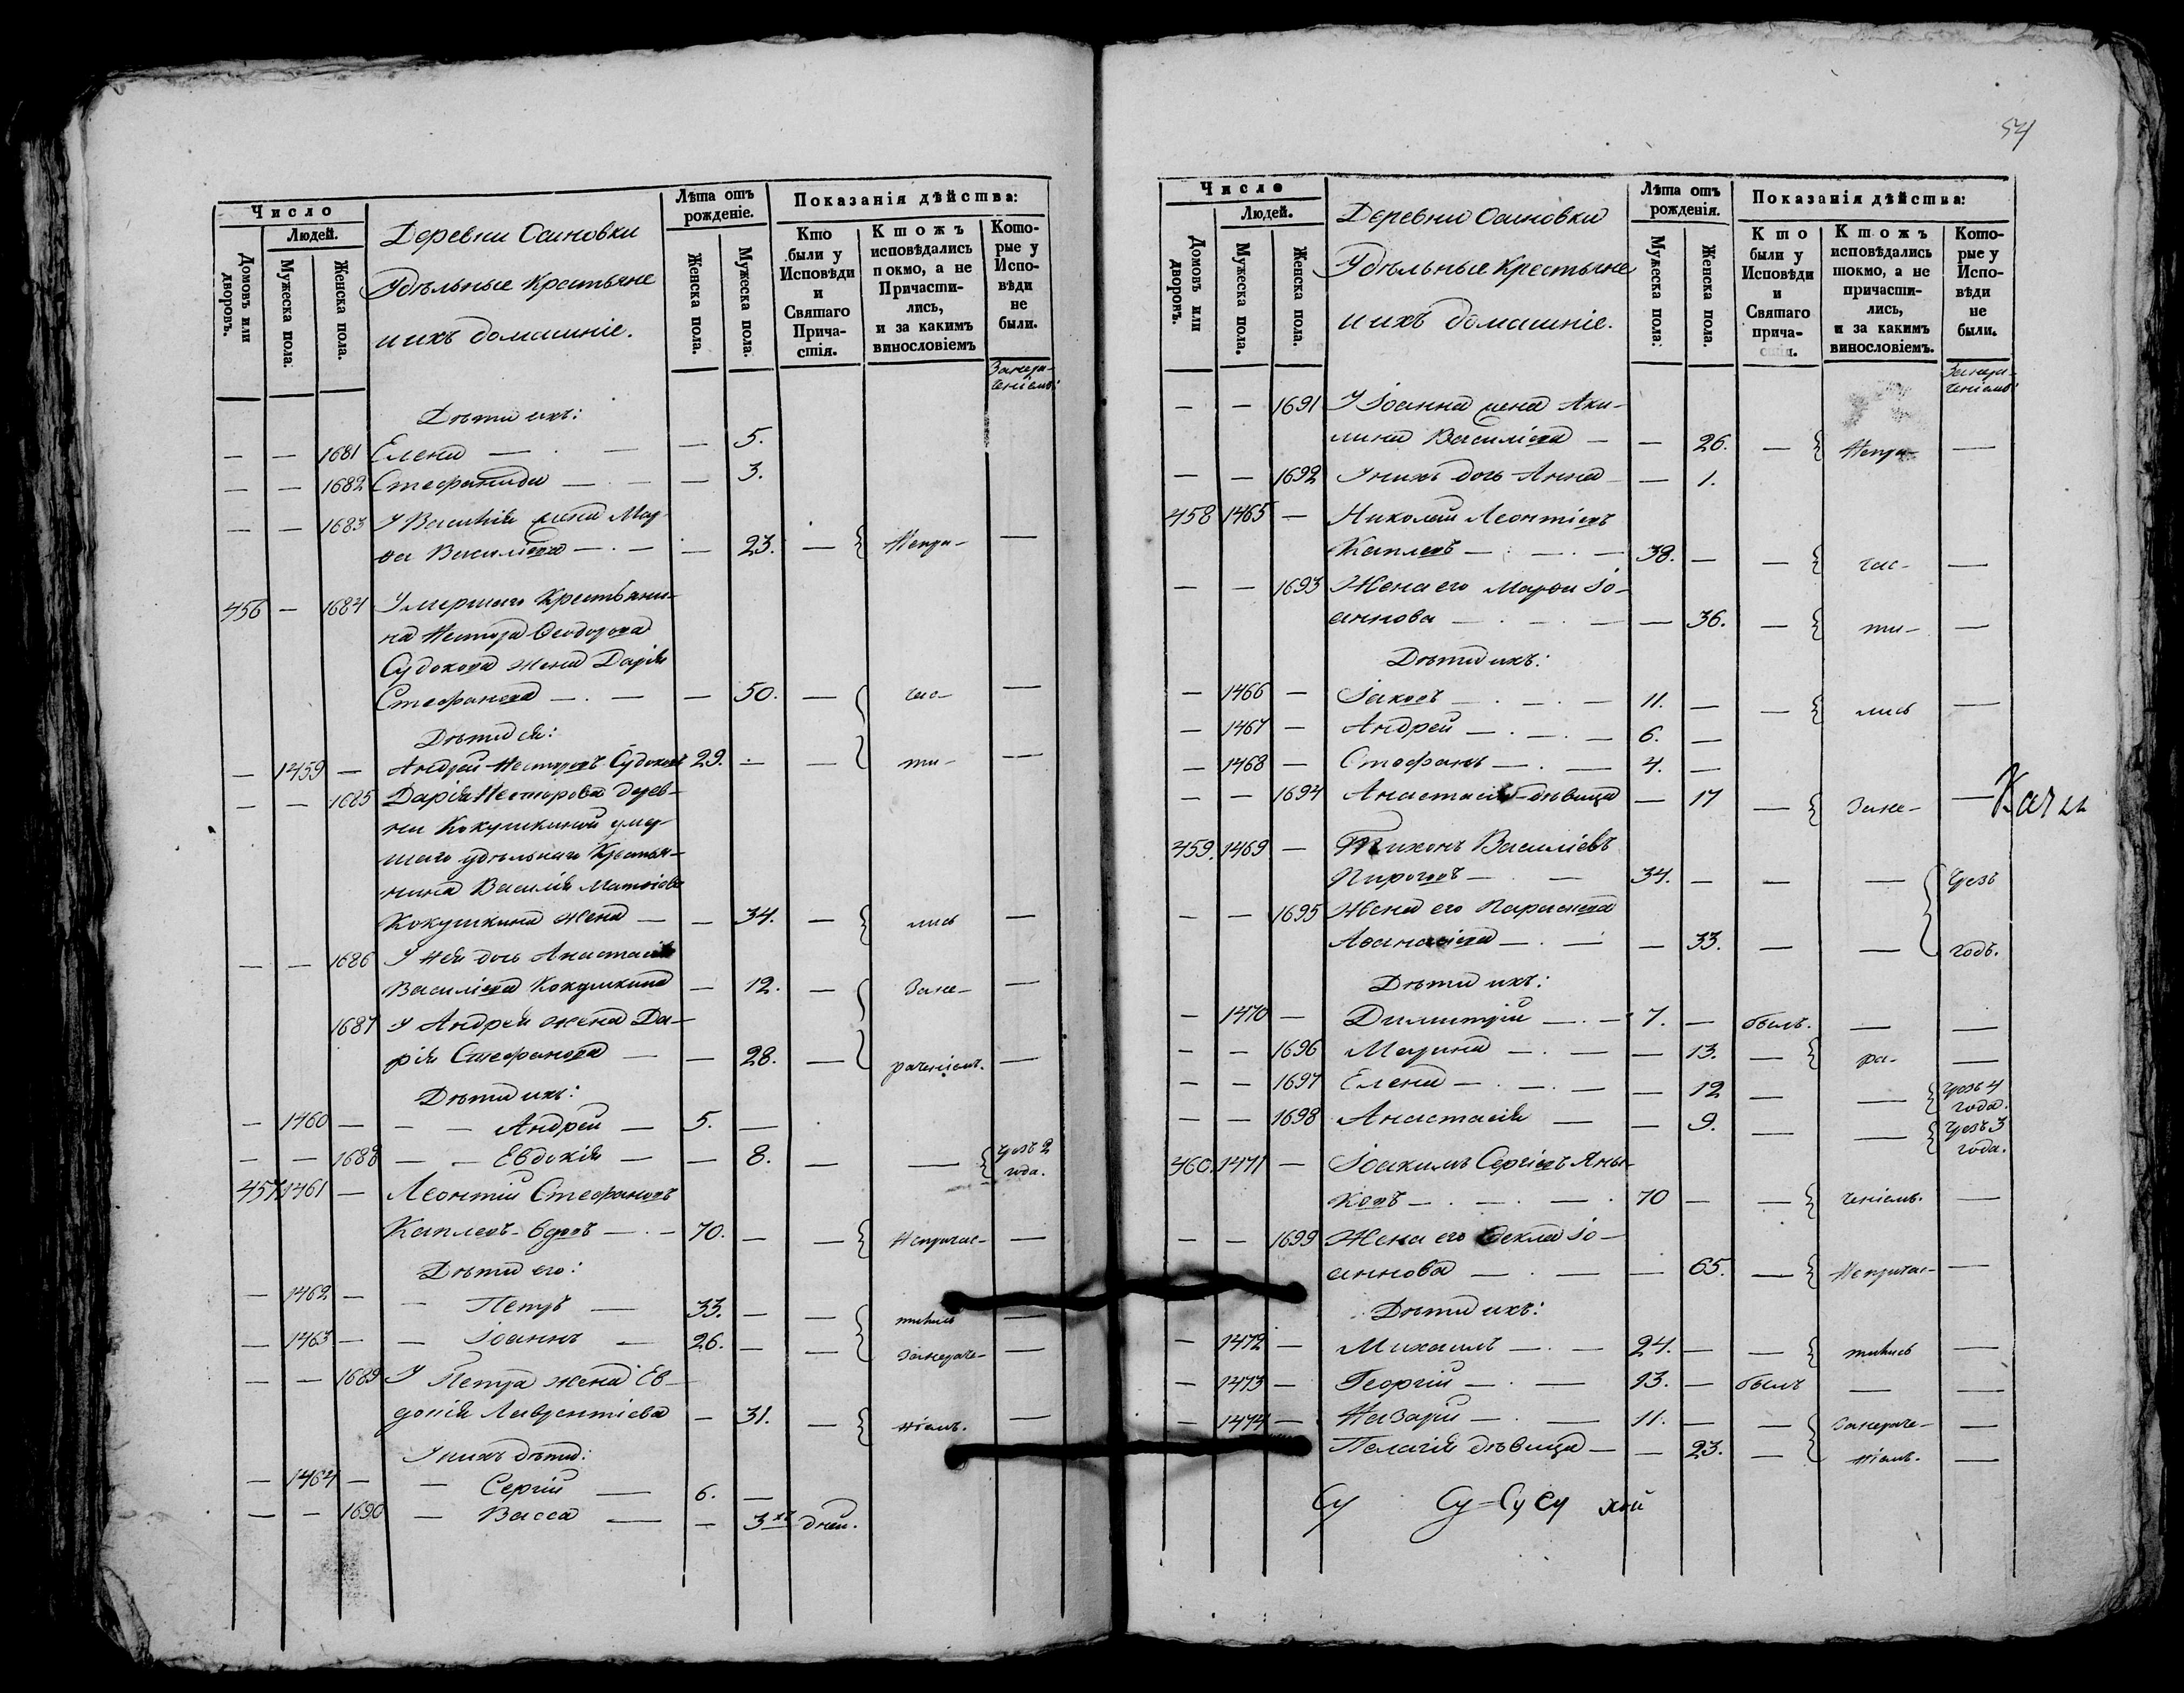 Число
Людей.
Домовъ или дворовъ.
Мужеска пола.
Женска пола.
Деревни Осиновки
Удѣльные Крестьяне
и ихъ домашніе.
Лѣта отъ рожденіе.
Женска пола.
Мужеска пола.
Показанія дѣйства:
Кто были у Исповѣди и Святаго Прича-стія.
Ктожъ исповѣдались покмо, а не Причасти-лись, и за какимъ винословіемъ
Кото-рые у Испо-вѣди не были.
Занера-
ченіемъ:
Дѣти ихъ:
— — 1681 Елена — — 5.
— — 1682 Стефанида — — 3.
— — 1683 У Василія жена Мар-
ѳа Василіева — — 23. — Непри- —
456 — 1684 Умершаго Крестьяни-
на Нестора Ѳеодорова
Судокова жена Дарія
Стефанова — — 50. — час- —
Дѣти ея:
— 1459 — Андрей Несторовъ Судоковъ 29. — — ти- —
— — 1685 Дарія Несторова дерев-
ни Кокушкиной умер-
шаго удѣльнаго Крестья-
нина Василія Матѳіева
Кокушкина жена — — 34. — лись —
— — 1686 У Нея дочь Анастасія
Василіева Кокушкина — 12. — Зане- —
1687 У Андрея жена Да-
рія Стефанова — — 28. — раченіемъ. —
Дѣти ихъ:
— 1460 — — — Андрей — 5. —
— — 1688 — — Евдокія — — 8. — — Чрезъ 2
года.
457 1461 — Леонтій Стефановъ
Каплевъ - вдовъ — 70. — — Непричас- —
Дѣти его:
— 1462 — — Петръ — 33. — — тились —
— 1463 — — Іоаннъ — 26. — — Занераче- —
— — 1689 У Петра жена Ев-
докія Лаврентіева — 31. — ніемъ. —
У нихъ дѣти:
— 1464 — — Сергій — 6. —
— — 1690 — Васса — — 3хъ дней.
54
Число
Людей.
Домовъ или дворовъ.
Мужеска пола.
Женска пола.
Деревни Осиновки
Удѣльные Крестьяне
и ихъ домашніе.
Лѣта отъ рожденія.
Мужеска пола.
Женска пола.
Показанія дѣйства:
Кто были у Исповѣди и Святаго прича-стія.
Ктожъ исповѣдались шокмо, а не причасти-лись, и за какимъ винословіемъ.
Кото-рые у Испо-вѣди не были.
Занера-
ченіемъ:
— — 1691 У Іоанна жена Аки-
лина Василіева — — 26. — Непри- —
— — 1692 У нихъ дочь Анна — — 1.
458 1465 — Николай Леонтіевъ
Каплевъ — 38. — — час- —
— — 1693 Жена его Марѳа Іо-
аннова — — 36. — ти- —
Дѣти ихъ:
— 1466 — Іаковъ — 11. — — лись —
— 1467 — Андрей — 6. —
— 1468 — Стефанъ — 4. —
— — 1694 Анастасія - дѣвица — 17 — Зане- —
459. 1469 — Тихонъ Василіевъ
Пироговъ — 34. — — — Чрезъ
— — 1695 Жена его Параскева
Аѳанасіева — — 33. — — годъ.
Дѣти ихъ:
— 1470 — Димитрій — 7. — былъ. — —
— — 1696 Марина — — 13. — ра- —
— — 1697 Елена — — 12 — — Чрезъ 4
года.
— — 1698 Анастасія — — 9. — — Чрезъ 3
года.
460. 1471 — Іоакимъ Сергіевъ Яны-
кевъ — 70 — — ченіемъ. —
— — 1699 Жена его Ѳекла Іо-
аннова — — 65. — Непричас- —
Дѣти ихъ:
— 1472 — Михаилъ — 24. — — тились —
— 1473 — Георгій — 13. — былъ — —
— 1474 — Назарій — 11. — — Занераче- —
Пелагія дѣвица — — 23. — ніемъ. —
Су Су=Су Су